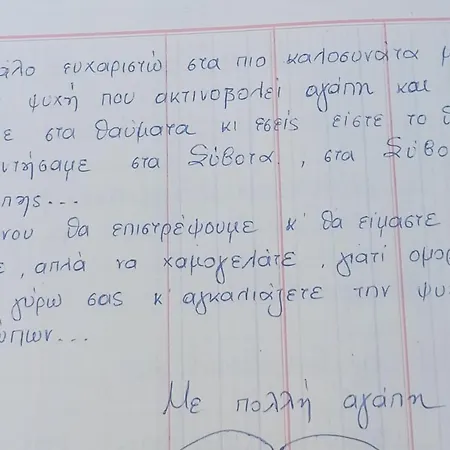 άλο ευχαριστώ στα πιο καλοσυνάτα μ
ψυχή που ακτινοβολεί αγάπη και
ε στα θαύματα κι εσείς είστε το θ
ντήσαμε στα Σύβοτα, στα Σύβο
πης...
νου θα επιστρέψουμε κ' θα είμαστε
ε, απλά να χαμογελάτε, γιατί ομορ
γύρω σας κ' αγκαλιάζετε την ψυ
ώπων...
Με πολλή αγάπη